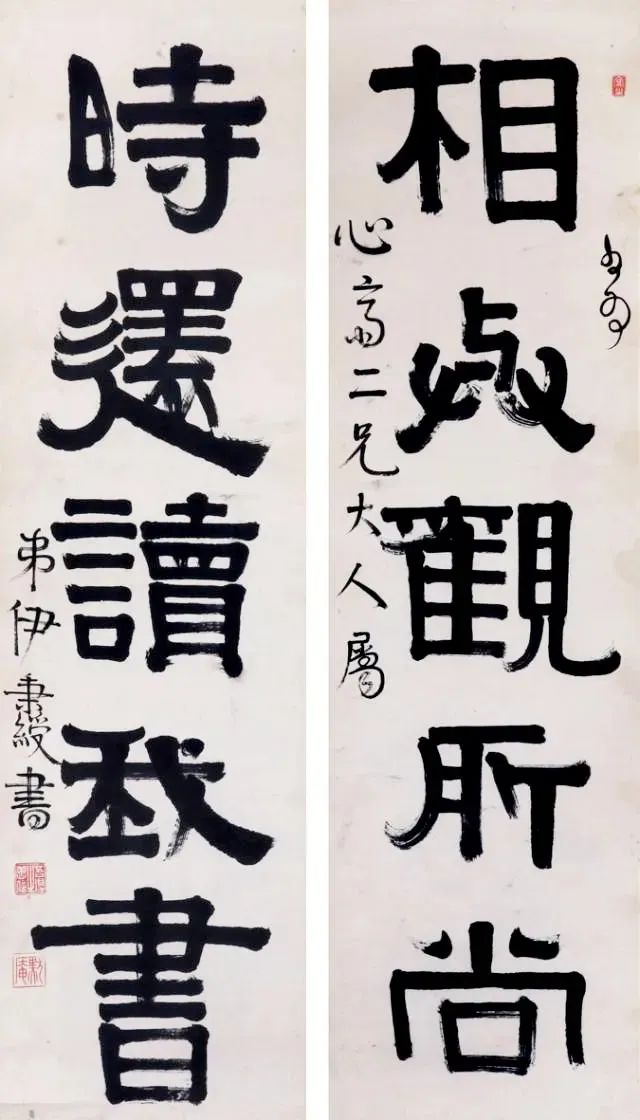 相與觀所尚
心齋二兄大人屬
時還讀我書
弟伊秉綬書